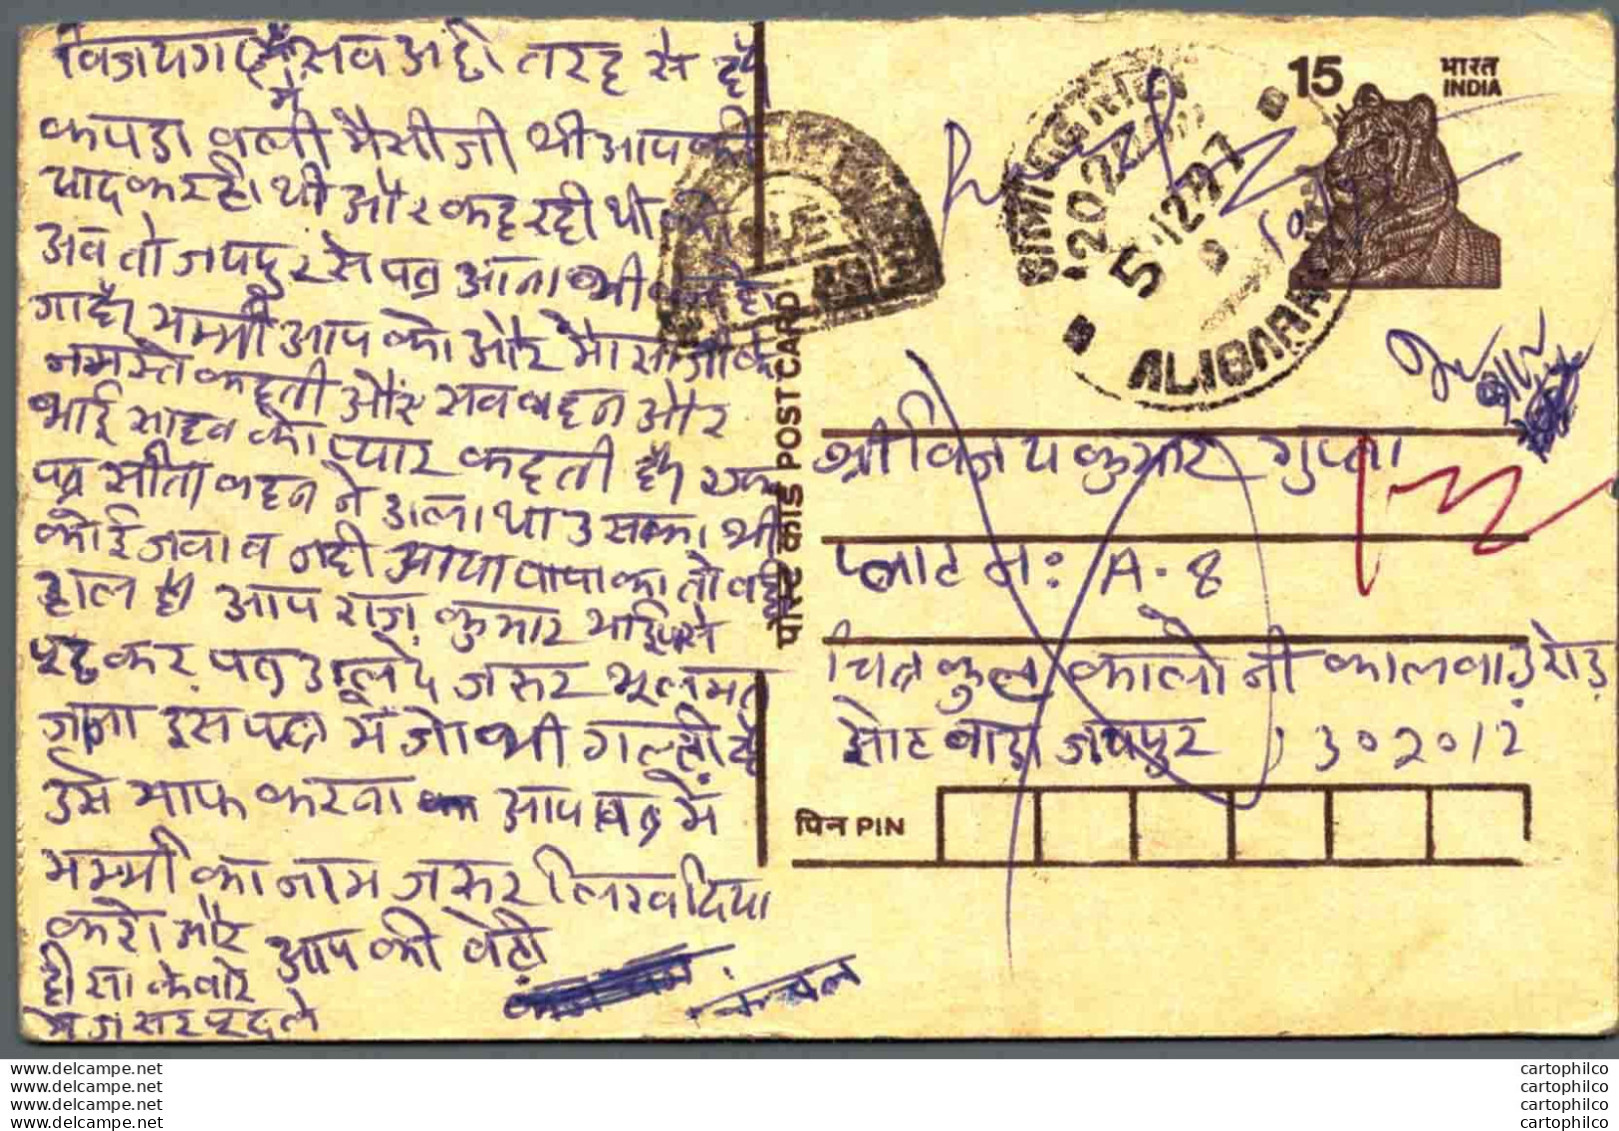 विजयगढ़ में सव अछी तरह से है
कपडा वाली मैसी जी थी आप की
याद कर रही थी और कह रही थी की
अव तो जयपुर से पत्र आना भी
गा है। मम्मी आप को और मौसी जी के
नमस्ते कहती और सव वहन और
भाई साहव को प्यार कहती है। एक
पत्र सीता वहन ने डाला था उसका भी
कोई जवाव नही आया पापा का तो वही
हाल है। आप राज कुमार भाई से
पूछ कर पत्र डाल दे जरूर भूल मत
जाना इस पत्र में जो भी गल्ती है
उसे माफ करना आप पत्र में
मम्मी का नाम जरूर लिखदिया
करो और आप की वेटी
ही सा के वारे
में जरूर पूछ ले
कंचल
पोस्ट कार्ड POST CARD
15
भारत
INDIA
202280
5 12 97
ALIGARH
श्री विजय कुमार गुप्ता
प्लाट न: A-8
चित्रकुल कालोनी कालवाड़ रोड़
झोटवाडा जयपुर , 302012
पिन PIN
www.delcampe.net
www.delcampe.net
www.delcampe.net
www.delcampe.net
cartophilco
cartophilco
cartophilco
cartophilco